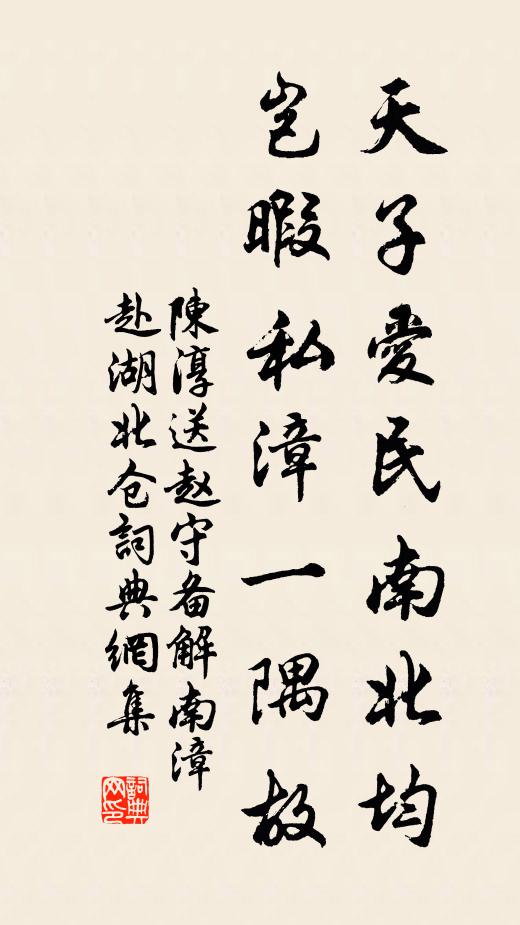 天子愛民南北均
岂暇私漳一隅故
陳淳送赵守备解南漳
赴湖北仓詞典網集
詞典网印